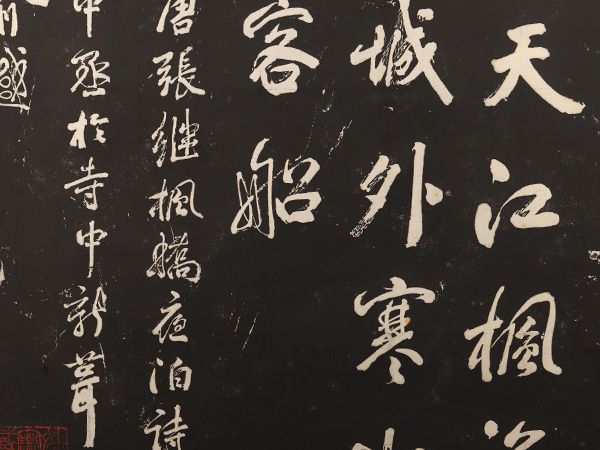 天江楓漁
城外寒山
客船
唐張継楓橋夜泊詩
中丞於寺中新葺